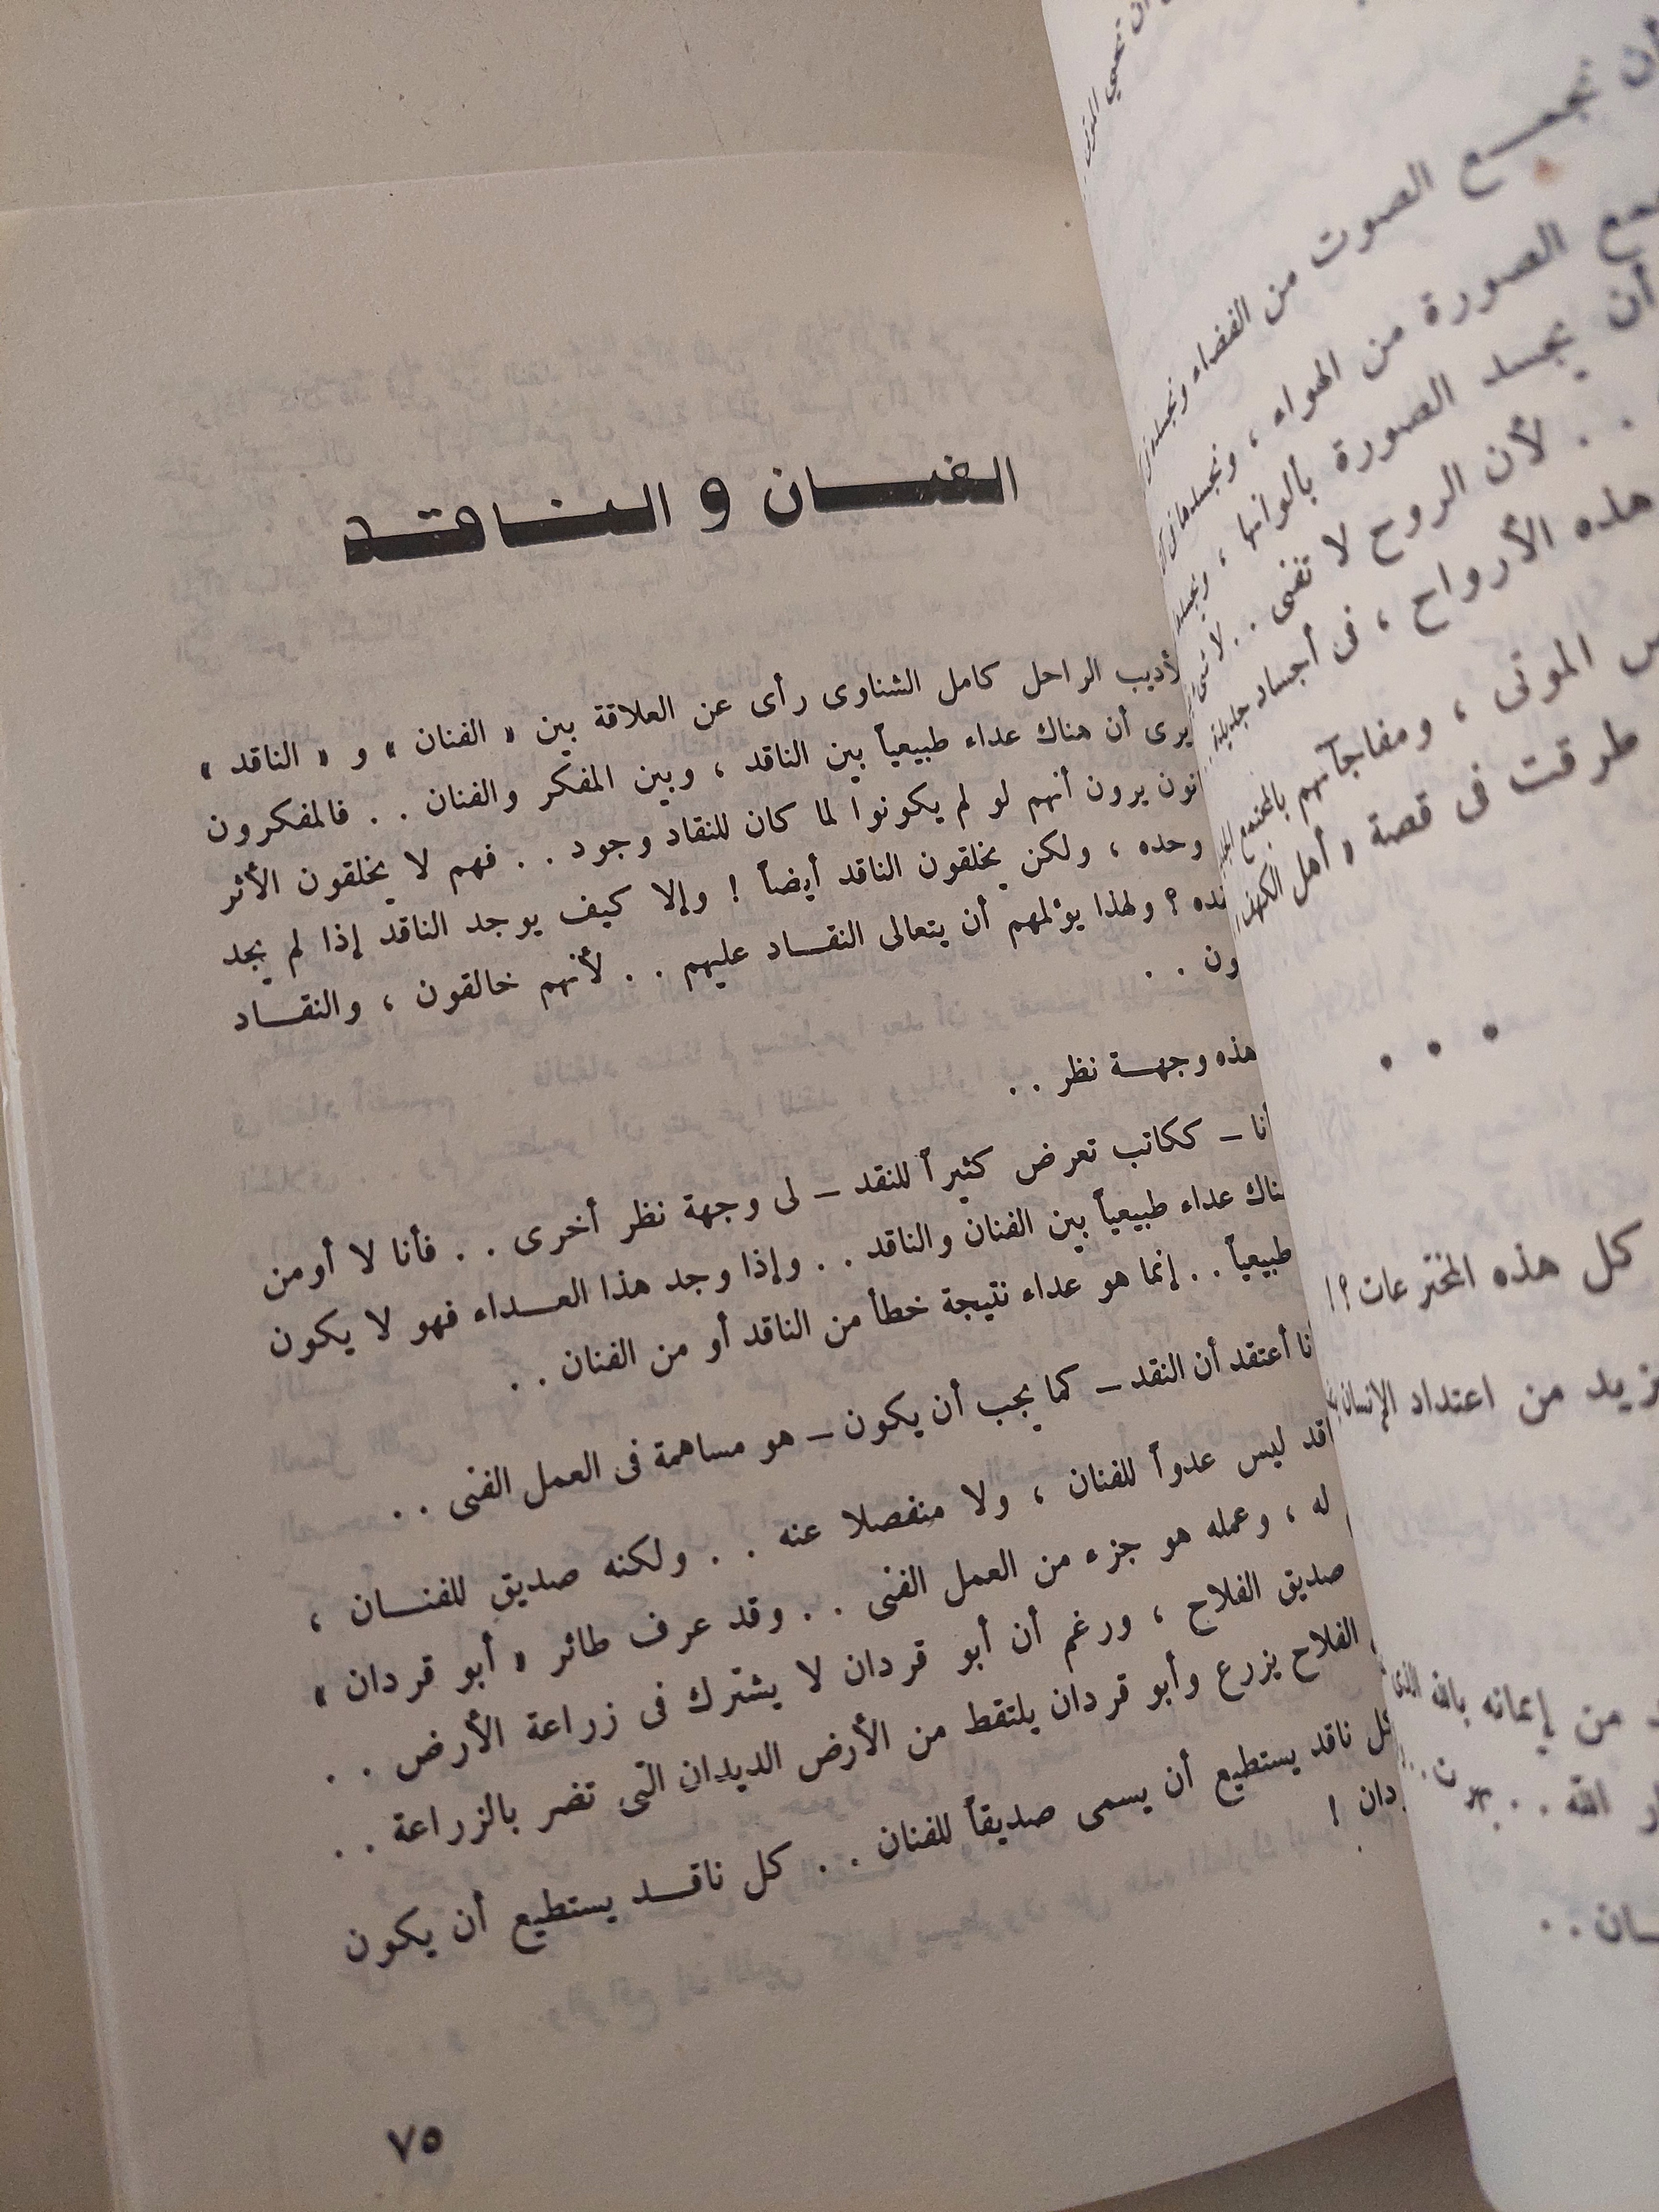 أن نجمع الصوت من الفضاء ونجسده
الصورة من الهواء ، ونجسدها فى
أن يجسد الصورة بألوانها ،
. . لأن الروح لا تفنى . .
هذه الأرواح ، فى أجساد جديدة . .
الموتى ، ومفاجآتهم بالمجتمع
طرقت فى قصة « أهل الكهف
• • •
كل هذه المخترعات ؟ !
من اعتداد الإنسان
من إيمانه بالله الذى
الله . .
الفنان و الناقد
لأديب الراحل كامل الشناوى رأى عن العلاقة بين « الفنان » و « الناقد »
يرى أن هناك عداء طبيعياً بين الناقد ، وبين المفكر والفنان . . فالمفكرون
انون يرون أنهم لو لم يكونوا لما كان للنقاد وجود . . فهم لا يخلقون الأثر
وحده ، ولكن يخلقون الناقد أيضاً ! وإلا كيف يوجد الناقد إذا لم يجد
قده ؟ ولهذا يؤلمهم أن يتعالى النقاد عليهم . . لأنهم خالقون ، والنقاد
ون . .
هذه وجهة نظر . .
أنا – ككاتب تعرض كثيراً للنقد – لى وجهة نظر أخرى . . فأنا لا أومن
هناك عداء طبيعياً بين الفنان والناقد . . وإذا وجد هذا العداء فهو لا يكون
طبيعياً . . إنما هو عداء نتيجة خطأ من الناقد أو من الفنان . .
أنا أعتقد أن النقد – كما يجب أن يكون – هو مساهمة فى العمل الفنى . .
اقد ليس عدواً للفنان ، ولا منفصلا عنه . . ولكنه صديق للفنان ،
له ، وعمله هو جزء من العمل الفنى . . وقد عرف طائر « أبو قردان »
صديق الفلاح ، ورغم أن أبو قردان لا يشترك فى زراعة الأرض . .
الفلاح يزرع وأبو قردان يلتقط من الأرض الديدان التى تضر بالزراعة . .
كل ناقد يستطيع أن يسمى صديقاً للفنان . . كل ناقد يستطيع أن يكون
ردان !
٧٥